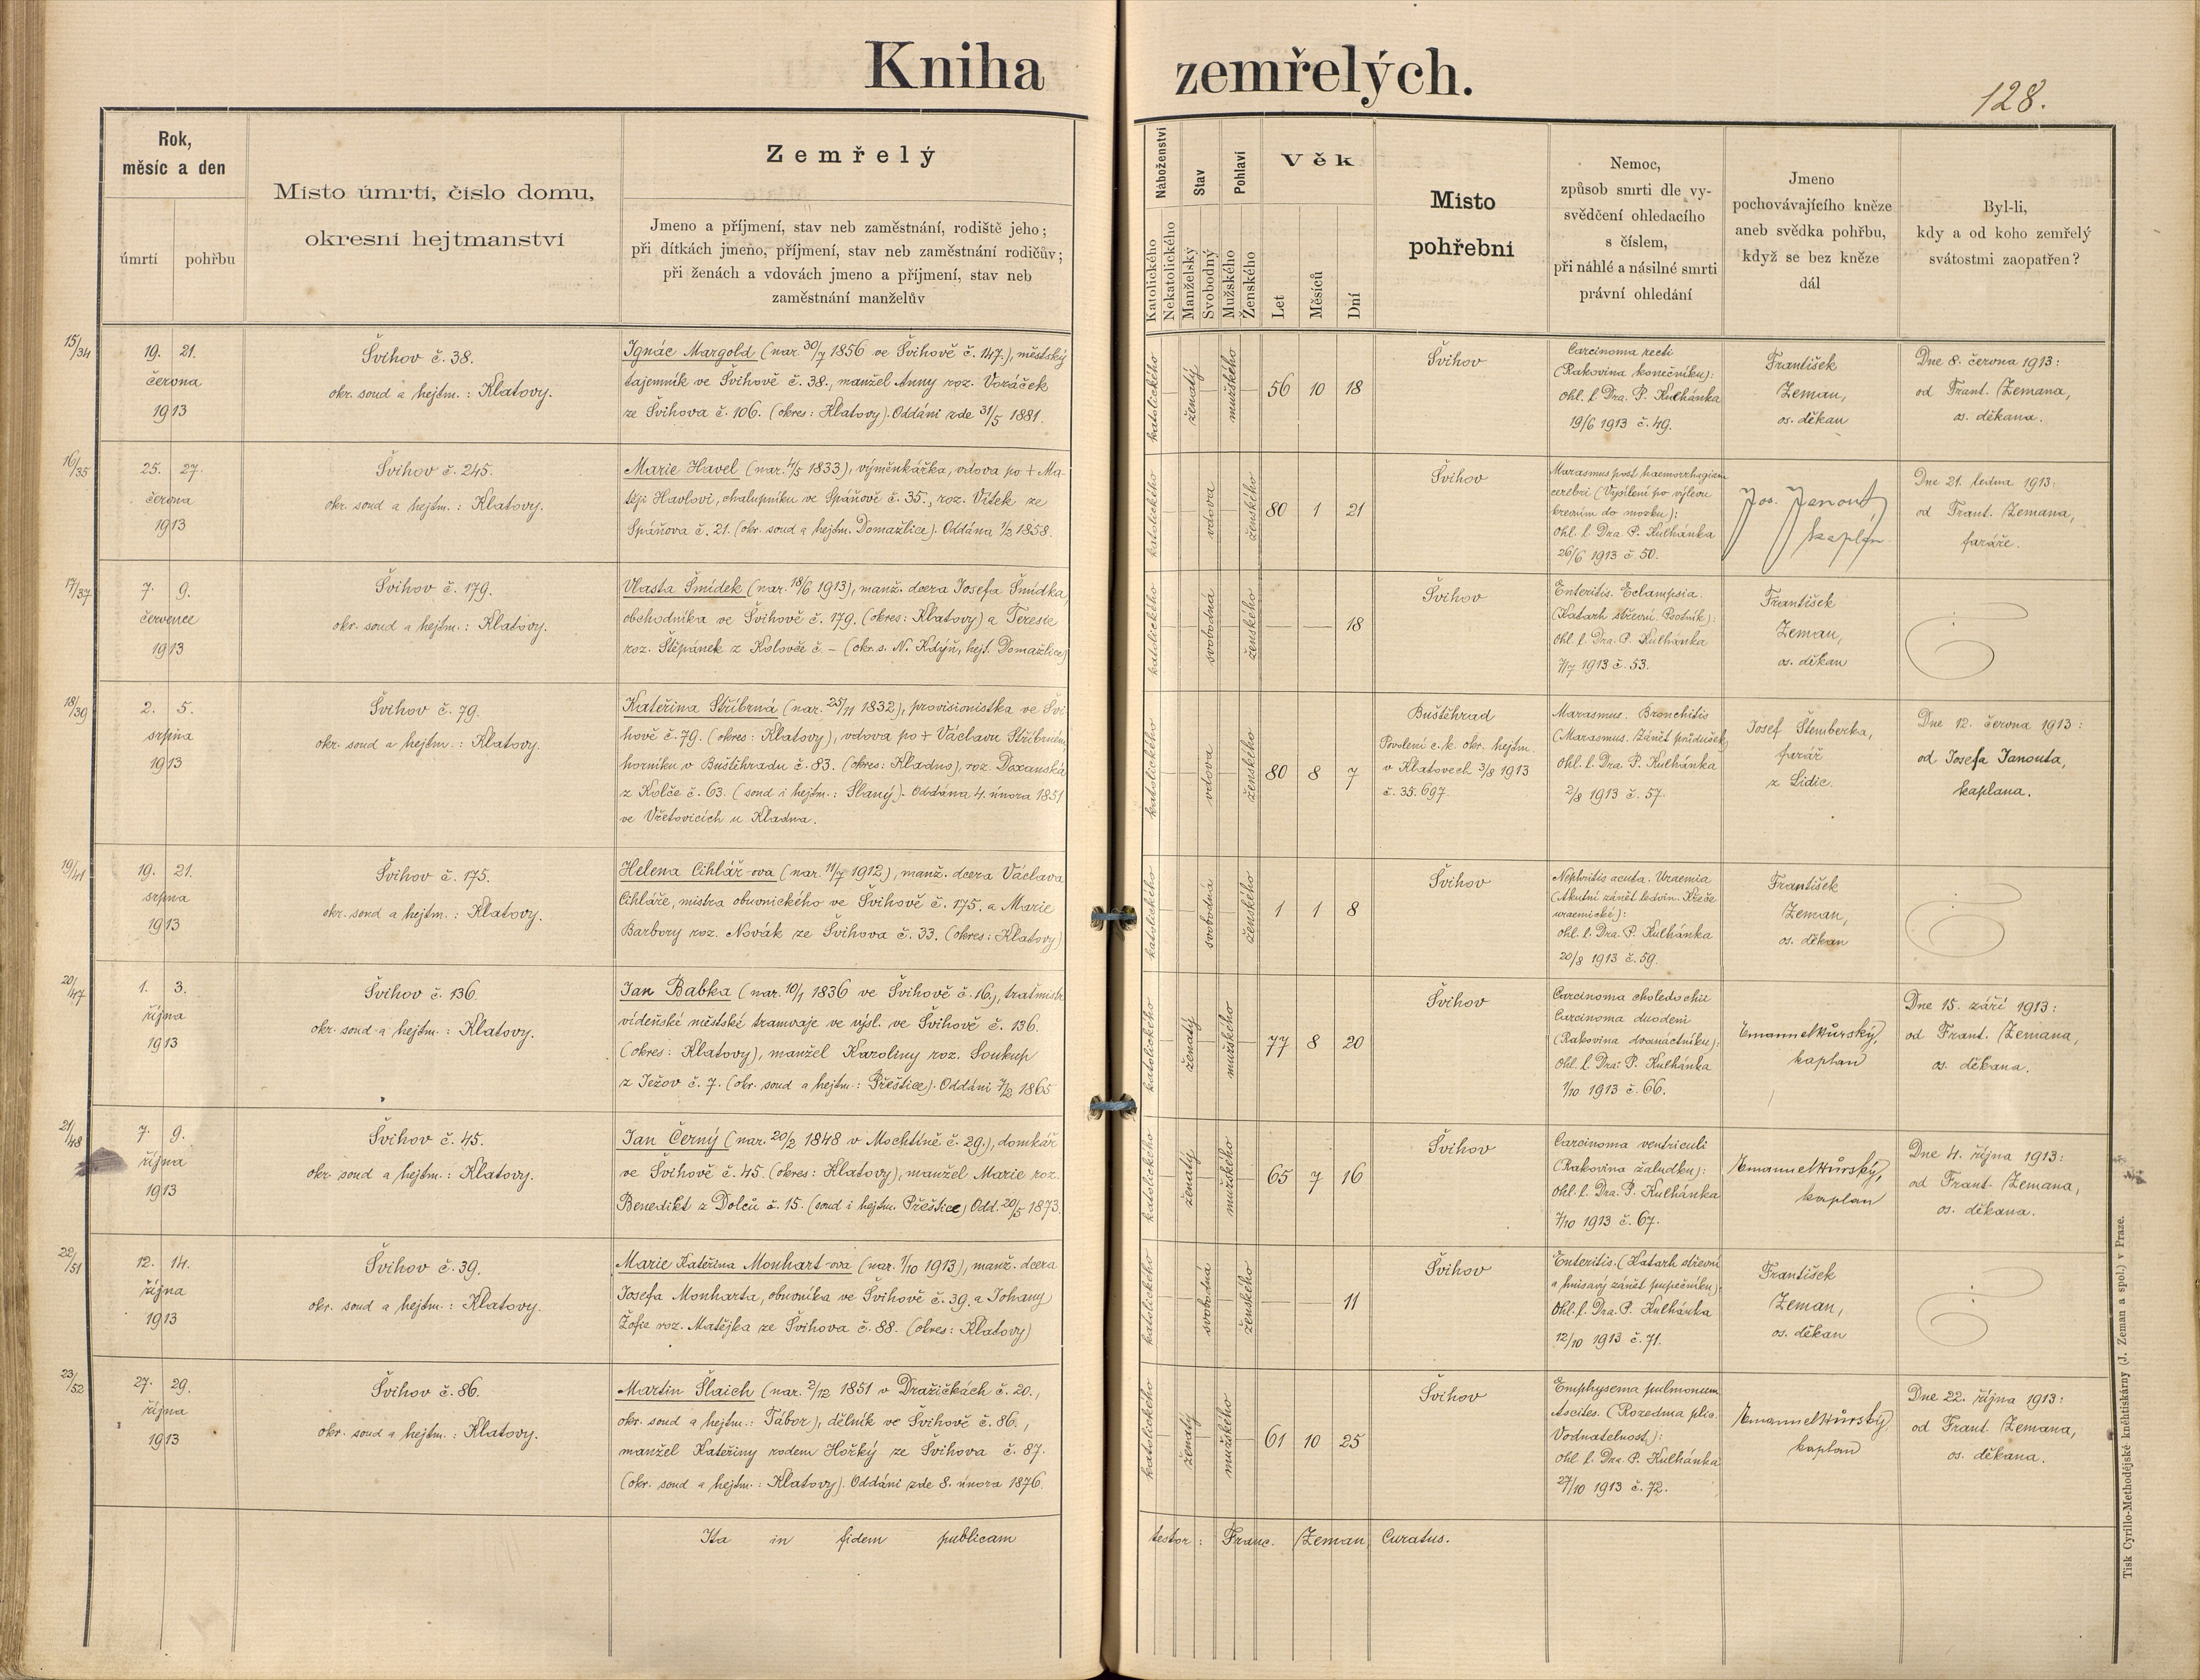 Kniha zemřelých.
128.
Rok,
měsíc a den
úmrtí
pohřbu
Místo úmrtí, číslo domu,
okresní hejtmanství
Zemřelý
Jmeno a příjmení, stav neb zaměstnání, rodiště jeho;
při dítkách jmeno, příjmení, stav neb zaměstnání rodičův;
při ženách a vdovách jmeno a příjmení, stav neb
zaměstnání manželův
Náboženství
Katolického
Nekatolického
Stav
Manželský
Svobodný
Pohlaví
Mužského
Ženského
Věk
Let
Měsíců
Dní
Místo
pohřební
Nemoc,
způsob smrti dle vy-
svědčení ohledacího
s číslem,
při náhlé a násilné smrti
právní ohledání
Jmeno
pochovávajícího kněze
aneb svědka pohřbu,
když se bez kněze
dál
Byl-li,
kdy a od koho zemřelý
svátostmi zaopatřen?
15/34
19. 21.
června
1913
Švihov č. 38.
okr. soud a hejtm.: Klatovy.
Ignác Margold (nar. 30/7 1856 ve Švihově č. 147.), městský
tajemník ve Švihově č. 38., manžel Anny roz. Voráček
ze Švihova č. 106. (okres: Klatovy). Oddáni zde 31/5 1881.
katolického
ženatý
mužského
56 10 18
Švihov
Carcinoma recti
(Rakovina konečníku):
ohl. l. Dra. P. Kulhánka
19/6 1913 č. 49.
František
Zeman,
os. děkan
Dne 8. června 1913:
od Frant. Zemana,
os. děkana.
16/35
25. 27.
června
1913
Švihov č. 245.
okr. soud a hejtm.: Klatovy.
Marie Havel (nar. 4/5 1833), výměnkářka, vdova po + Ma-
těji Havlovi, chalupníku ve Spáňově č. 35., roz. Vítek ze
Spáňova č. 21. (okr. soud a hejtm. Domažlice). Oddána 1/2 1858.
katolického
vdova
ženského
80 1 21
Švihov
Marasmus post haemorrhagiam
cerebri (Vysílení po výlevu
krevním do mozku):
Ohl. l. Dra. P. Kulhánka
26/6 1913 č. 50.
Jos. Janout,
kaplan
Dne 21. ledna 1913:
od Frant. Zemana,
faráře.
17/37
7. 9.
července
1913
Švihov č. 179.
okr. soud a hejtm.: Klatovy.
Vlasta Šmídek (nar. 18/6 1913), manž. dcera Josefa Šmídka,
obchodníka ve Švihově č. 179. (okres: Klatovy) a Teresie
roz. Štěpánek z Koloveč č. – (okr. s. N. Kdyň, hejt. Domažlice)
katolického
svobodná
ženského
18
Švihov
Enteritis. Eclampsia.
(Katarh střevní. Psotník):
Ohl. l. Dra. P. Kulhánka
7/7 1913 č. 53.
František
Zeman,
os. děkan
18/39
2. 5.
srpna
1913
Švihov č. 79.
okr. soud a hejtm.: Klatovy.
Kateřina Stříbrná (nar. 25/11 1832), provisionistka ve Švi
hově č. 79. (okres: Klatovy), vdova po + Václavu Stříbrném,
horníku v Buštěhradu č. 83. (okres: Kladno), roz. Doxanská
z Kolče č. 63. (soud i hejtm.: Slaný). Oddána 4. února 1851
ve Vřetovicích u Kladna.
katolického
vdova
ženského
80 8 7
Buštěhrad
Povolení c. k. okr. hejtm.
v Klatovech 3/8 1913
č. 35.697.
Marasmus. Bronchitis
(Marasmus. Zánět průdušek)
Ohl. l. Dra P. Kulhánka
2/8 1913 č. 57.
Josef Štemberka,
farář
z Lidic.
Dne 12. června 1913:
od Josefa Janouta,
kaplana.
19/41
19. 21.
srpna
1913
Švihov č. 175.
okr. soud a hejtm.: Klatovy.
Helena Cihlář-ova (nar. 11/7 1912), manž. dcera Václava
Cihláře, mistra obuvnického ve Švihově č. 175. a Marie
Barbory roz. Novák ze Švihova č. 33. (okres: Klatovy)
katolického
svobodná
ženského
1 1 8
Švihov
Nephritis acuta. Uraemia
(Akutní zánět ledvin. Křeče
uraemické):
Ohl. l. Dra. P. Kulhánka
20/8 1913 č. 59.
František
Zeman,
os. děkan
20/47
1. 3.
října
1913
Švihov č. 136.
okr. soud a hejtm.: Klatovy.
Jan Babka (nar. 10/1 1836 ve Švihově č. 16.), traťmistr
vídeňské městské tramvaje ve výsl. ve Švihově č. 136.
(okres: Klatovy), manžel Karoliny roz. Soukup
z Ježov č. 7. (okr. soud a hejtm.: Přeštice). Oddáni 7/2 1865
katolického
ženatý
mužského
77 8 20
Švihov
Carcinoma choledochu
Carcinoma duodeni
(Rakovina dvanáctníku):
Ohl. l. Dra. P. Kulhánka
1/10 1913 č. 66.
Emanuel Kůrský,
kaplan
Dne 15. září 1913:
od Frant. Zemana,
os. děkana.
21/48
7. 9.
října
1913
Švihov č. 45.
okr. soud a hejtm.: Klatovy.
Jan Černý (nar. 20/2 1848 v Mochtíně č. 29.), domkář
ve Švihově č. 45. (okres: Klatovy), manžel Marie roz.
Benedikt z Dolců č. 15. (soud i hejtm. Přeštice) Odd. 20/5 1873.
katolického
ženatý
mužského
65 7 16
Švihov
Carcinoma ventriculi
(Rakovina žaludku):
Ohl. l. Dra. P. Kulhánka
7/10 1913 č. 67.
Emanuel Kůrský,
kaplan
Dne 4. října 1913:
od Frant. Zemana,
os. děkana.
22/51
12. 14.
října
1913
Švihov č. 39.
okr. soud a hejtm.: Klatovy.
Marie Kateřina Monhart-ova (nar. 1/10 1913), manž. dcera
Josefa Monharta, obuvníka ve Švihově č. 39. a Johany
Žofie roz. Matějka ze Švihova č. 88. (okres: Klatovy)
katolického
svobodná
ženského
11
Švihov
Enteritis. (Katarh střevní
a hnisavý zánět pupečníku):
Ohl. l. Dra. P. Kulhánka
12/10 1913 č. 71.
František
Zeman,
os. děkan
23/52
27. 29.
října
1913
Švihov č. 86.
okr. soud a hejtm.: Klatovy.
Martin Šlaich (nar. 2/12 1851 v Dražičkách č. 20.,
okr. soud a hejtm.: Tábor), dělník ve Švihově č. 86.,
manžel Kateřiny rodem Hořký ze Švihova č. 87.
(okr. soud a hejtm.: Klatovy). Oddáni zde 8. února 1876.
katolického
ženatý
mužského
61 10 25
Švihov
Emphysema pulmonum.
Ascites. (Rozedma plic.
Vodnatelnost):
Ohl. l. Dra. P. Kulhánka
27/10 1913 č. 72.
Emanuel Kůrský,
kaplan
Dne 22. října 1913:
od Frant. Zemana,
os. děkana.
Ita in fidem publicam testor: Franc. Zeman, Curatus.
Tisk Cyrillo-Methodějské kněhtiskárny (J. Zeman a spol.) v Praze.